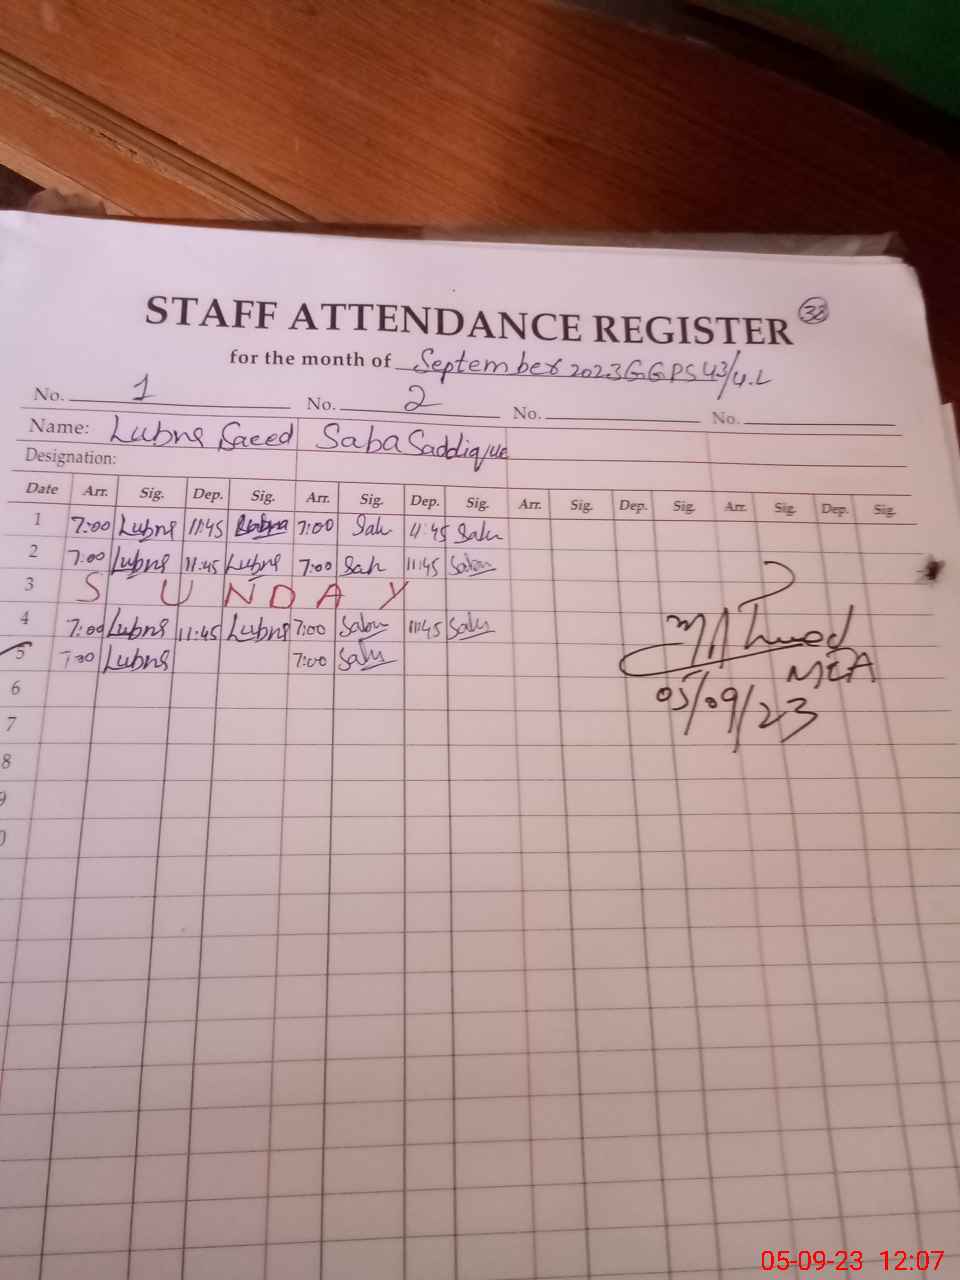 STAFF ATTENDANCE REGISTER 38
for the month of September 2023 GGPS 43/4.L
No. 1 No. 2 No. No.
Name: Lubna Saeed Saba Saddique
Designation:
Date Arr. Sig. Dep. Sig. Arr. Sig. Dep. Sig. Arr. Sig. Dep. Sig. Arr. Sig. Dep. Sig.
1 7:00 Lubna 11:45 Lubna 7:00 11:45
2 7:00 Lubna 11:45 Lubna 7:00 11:45
3 SUNDAY
4 7:00 Lubna 11:45 Lubna 7:00 11:45
5 7:00 Lubna 7:00
6
7
8
9
MEA
05/09/23
05-09-23 12:07